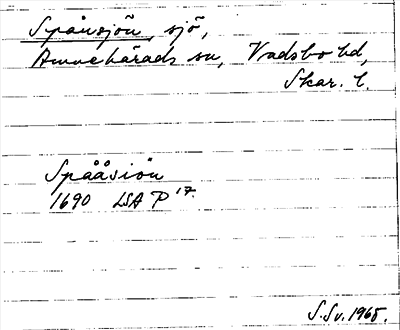 Spånsjön, sjö,
Amnehärads sn, Vadsbo hd,
Skar. l.
Spååsiön
1690 LSA P 17.
S.Sv. 1965.